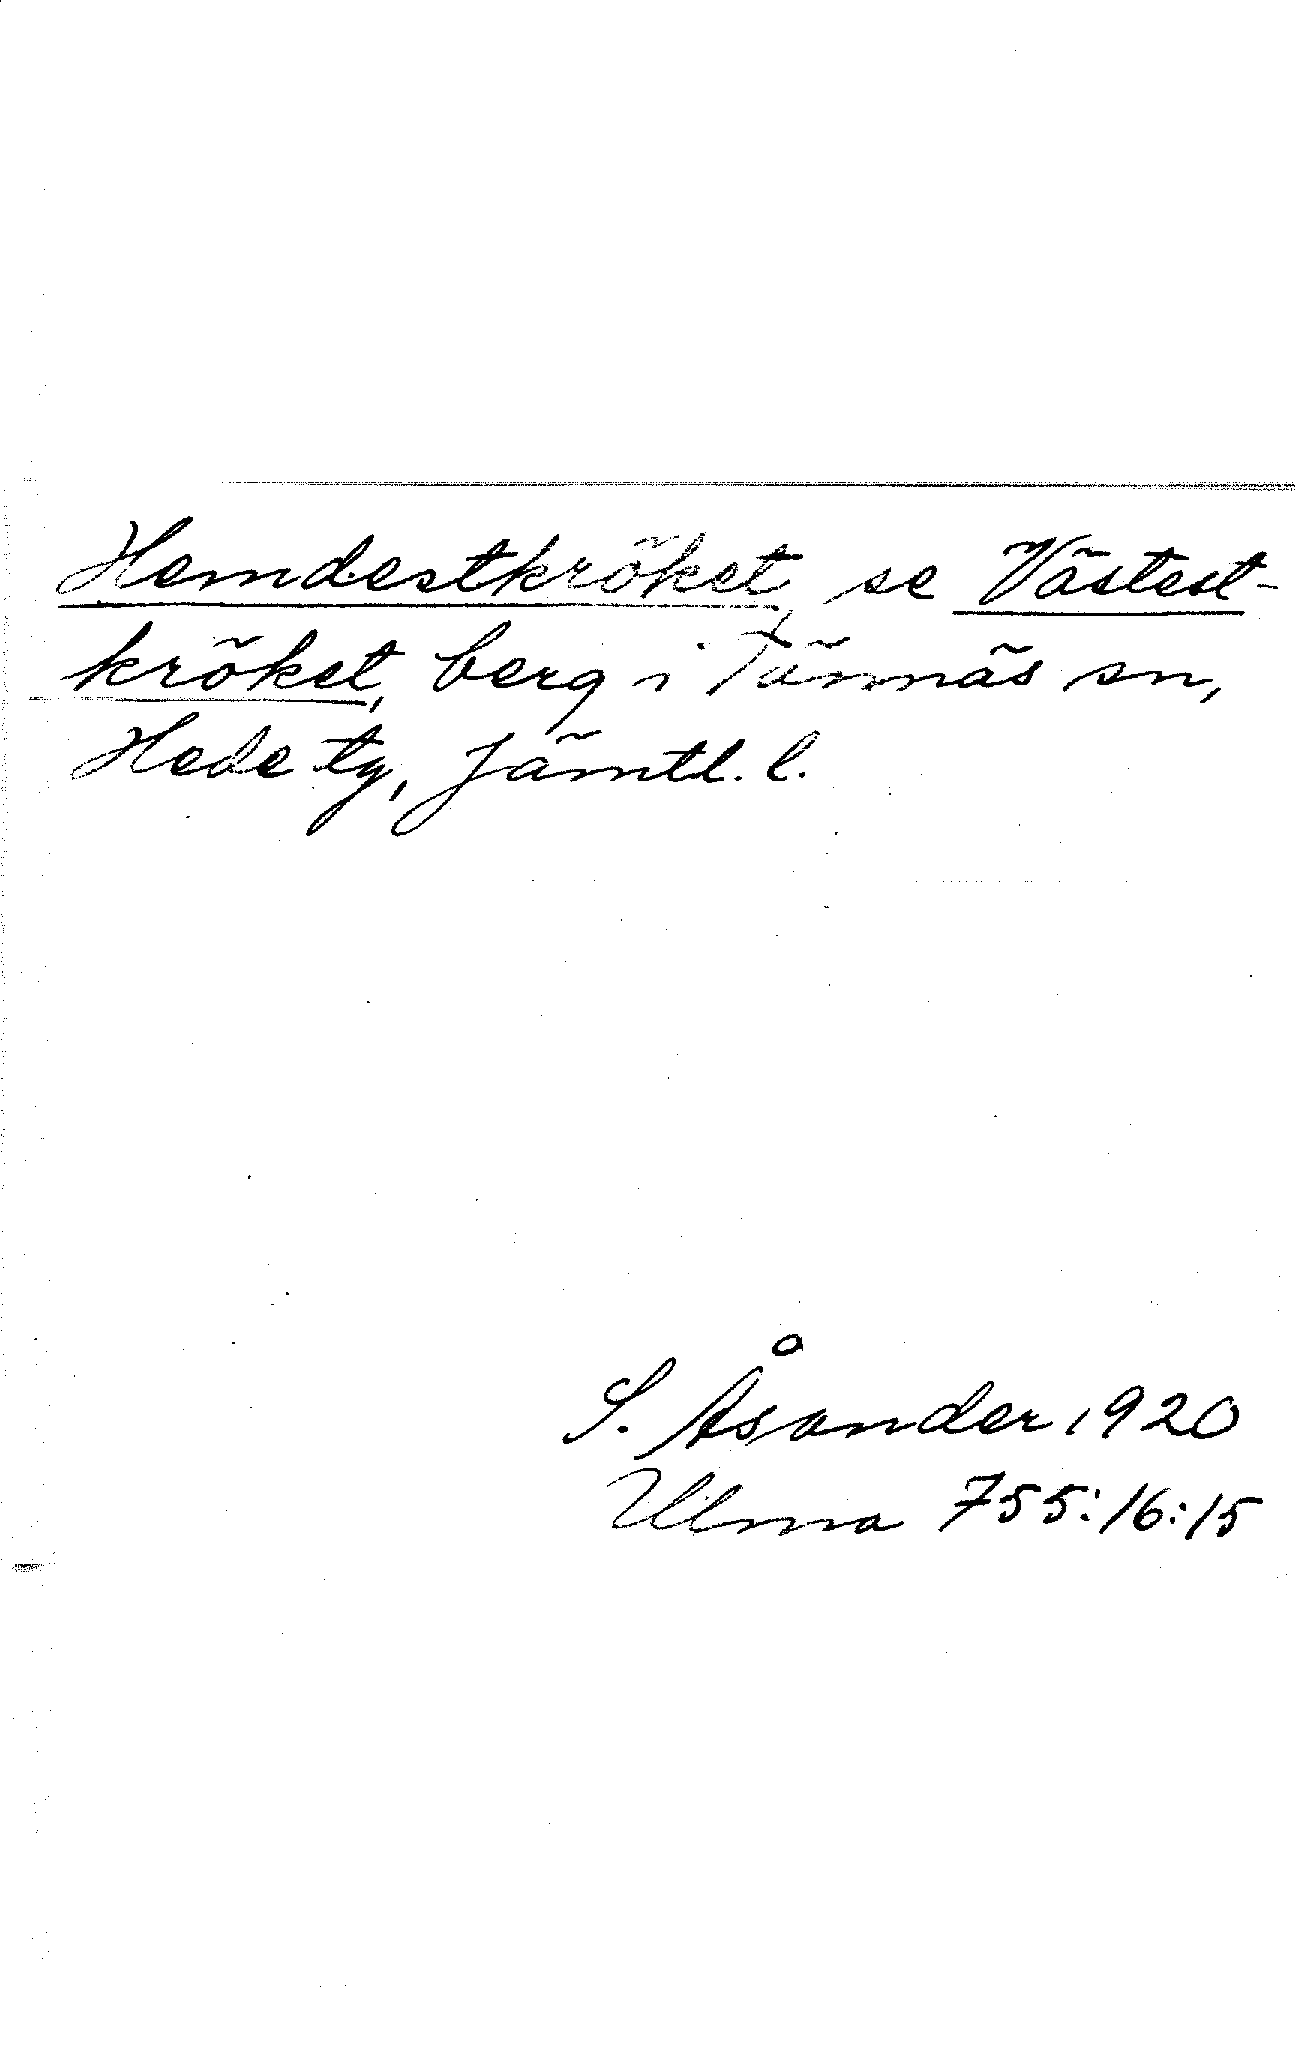 Hemdestkröket, se Västest-
kröket, berg i Tännäs sn,
Hede tg, Jämtl. l.
S. Åsander 1920
Ulma 755:16:15